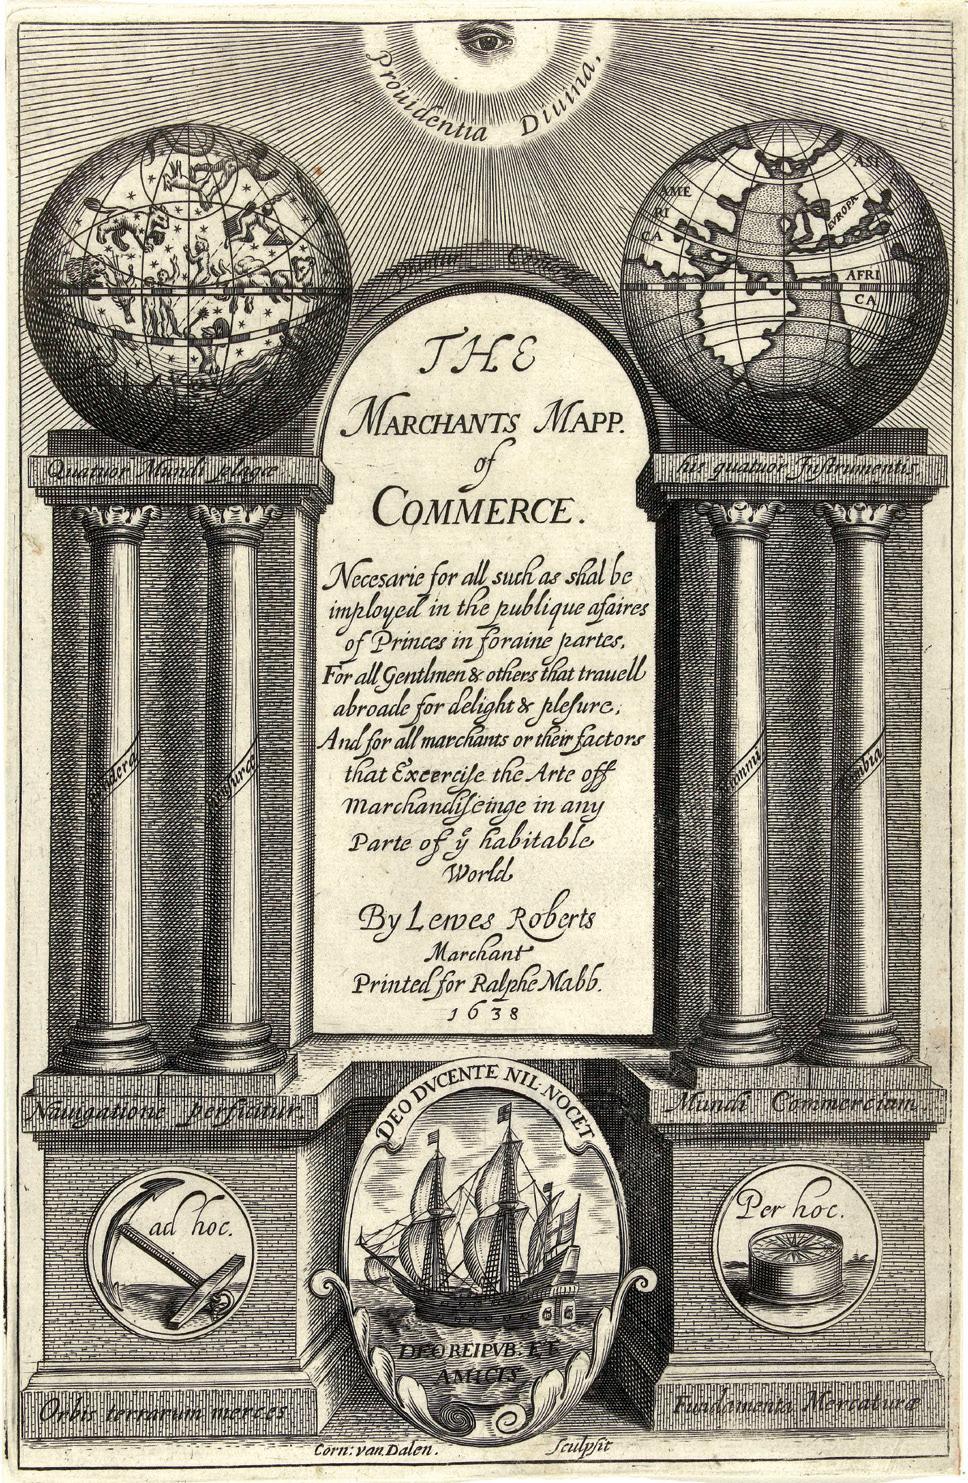 Prouidentia Diuina,
AME
RI
CA
ASI
EVROPA
AFRI
CA
THE
MARCHANTS MAPP.
of
COMMERCE.
Quatuor Mundi plagæ
his quatuor Instrumentis.
Necesarie for all such as shal be
imployed in the publique afaires
of Princes in foraine partes,
For all Gentlmen & others that trauell
abroade for delight & plesure,
And for all marchants or their factors
that Exercise the Arte off
marchandiseinge in any
Parte of yͤ habitable
World
By Lewes Roberts
Marchant
Printed for Ralphe Mabb.
1638
Nauigatione perficitur.
Mundi Commercium.
DEO DVCENTE NIL NOCET
ad hoc.
Per hoc.
DEO REIPVB. ET
AMICIS
Orbis terrarum merces
Fundamenta Mercaturæ
Corn: van Dalen. Sculpsit